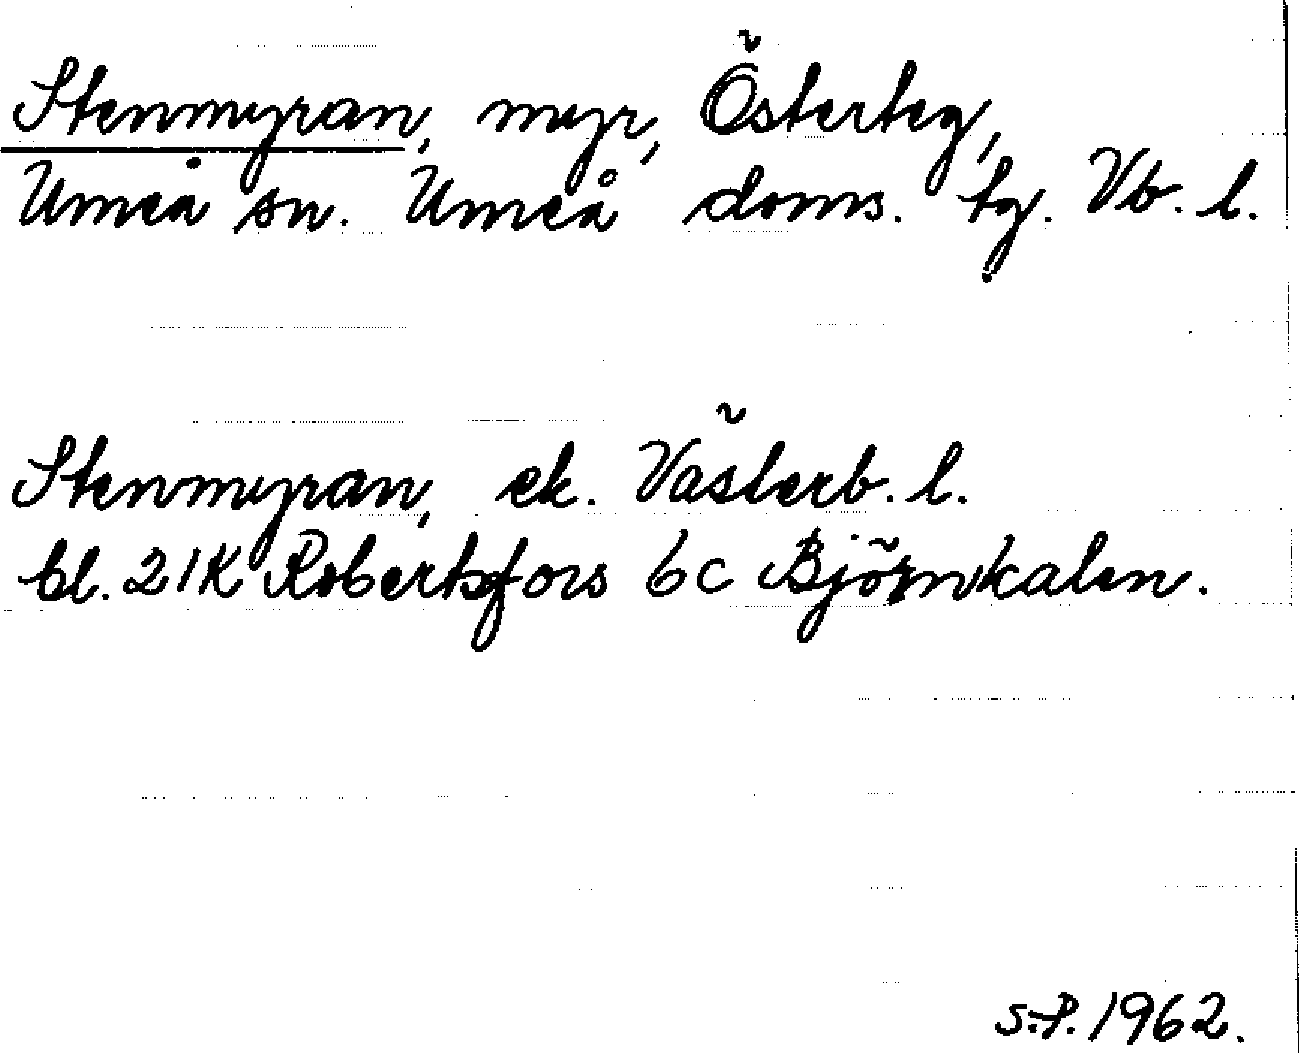 Stenmyran, myr, Österteg,
Umeå sn. Umeå doms. tg. Vb. l.
Stenmyran, ek. Västerb. l.
bl. 21K Robertsfors 6c Björnkalen.
S.P. 1962.